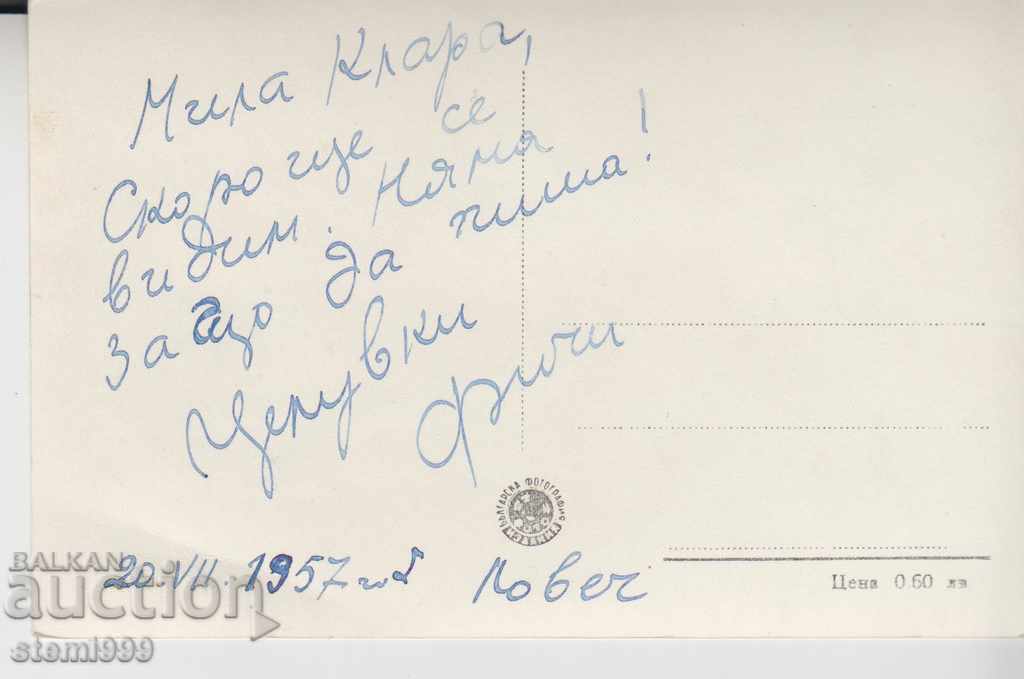 Мила Клара,
Скоро ще се
видим. Няма
защо да пиша!
Целувки
Фичи
БЪЛГАРСКА ФОТОГРАФИЯ
20.VII.1957
Ловеч
Цена 0.60 лв
BALKAN
auction
stemi999